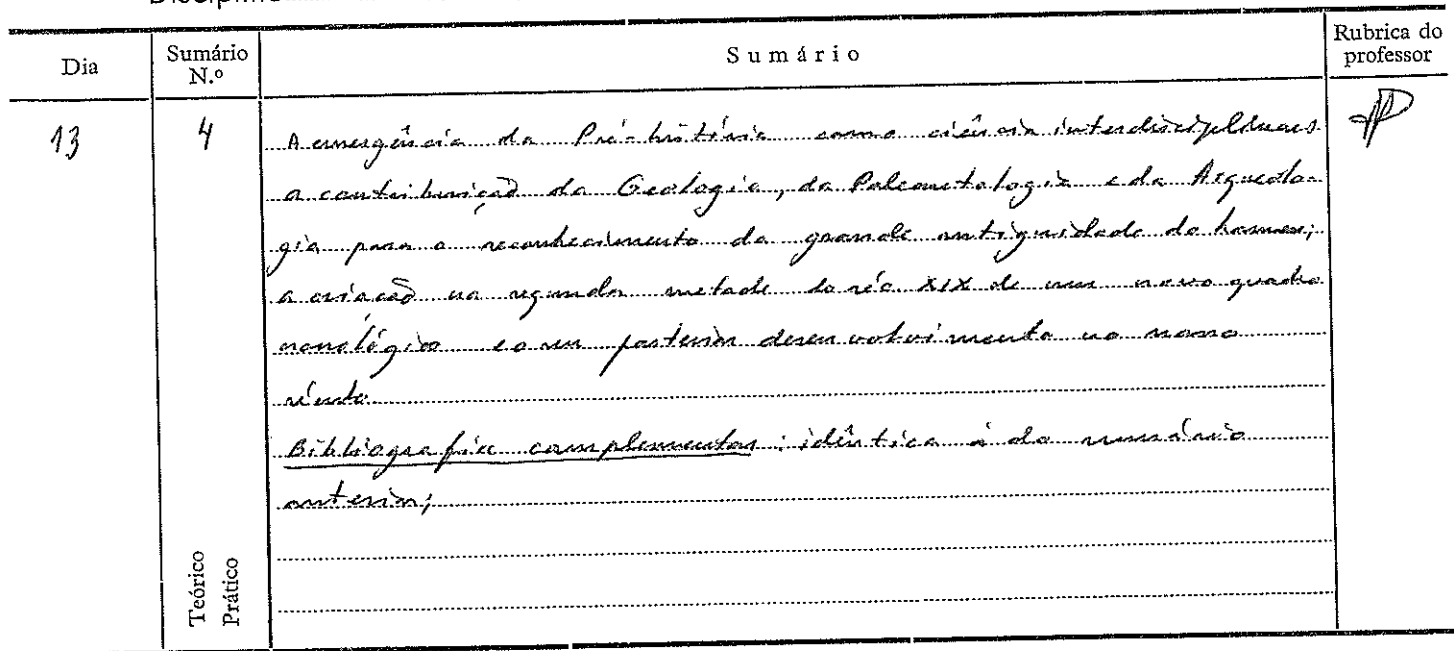 Dia
Sumário N.º
Sumário
Rubrica do professor
13
4
A emergência da Pré-história como ciência interdisciplinar:
a contribuição da Geologia, da Paleontologia e da Arqueolo-
gia para o reconhecimento da grande antiguidade do homem;
a criação na segunda metade do séc. XIX de um novo quadro
cronológico e o seu posterior desenvolvimento no nosso
século.
Bibliografia complementar: idêntica à do sumário
anterior;
Teórico
Prático